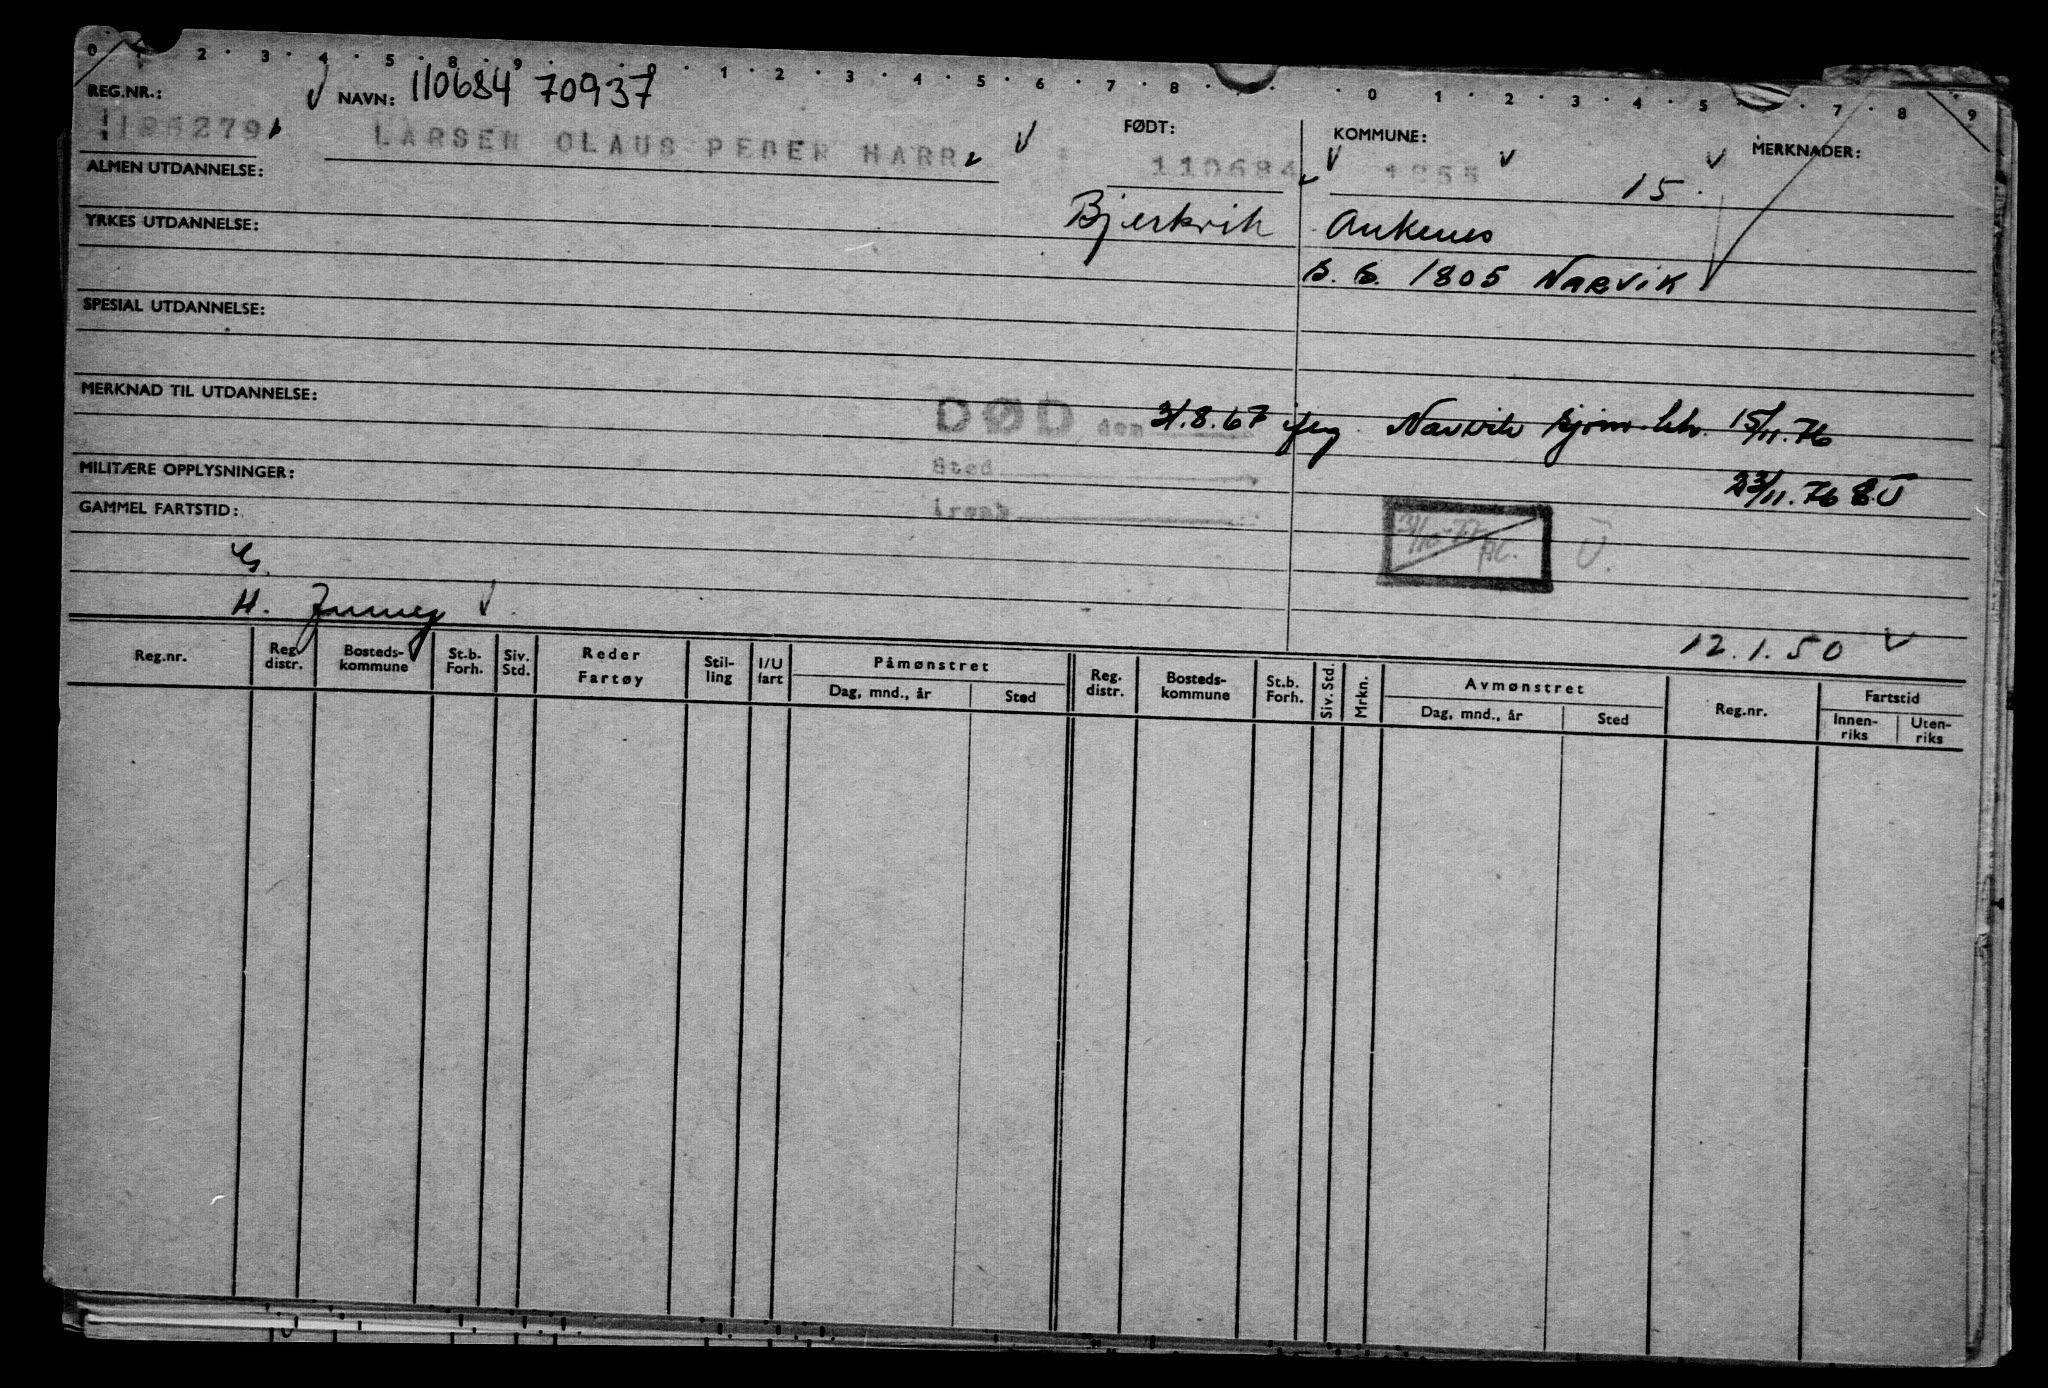 0 2 3 4 5 8 9 1 2 3 4 5 6 7 8 0 1 2 3 4 5 7 8 9
REG.NR.: NAVN: 110684 70937
LARSEN OLAUS PEDER HARR FØDT: 110684 KOMMUNE: 1855 MERKNADER:
ALMEN UTDANNELSE: 15
YRKES UTDANNELSE: Bjerkvik Ankenes
S.B. 1805 NARVIK
SPESIAL UTDANNELSE:
MERKNAD TIL UTDANNELSE:
DØD den 31.8.67 Narvik 15/11.76
MILITÆRE OPPLYSNINGER: Sted 23/11.76 Ü
GAMMEL FARTSTID: Årsak
Ü.
G.
H.
12.1.50
Reg.nr. Reg. distr. Bosteds-kommune St.b. Forh. Siv. Std. Reder Fartøy Stil-ling I/U fart Påmønstret Dag, mnd., år Sted Reg. distr. Bosteds-kommune St.b. Forh. Siv. Std. Mrkn. Avmønstret Dag, mnd., år Sted Reg.nr. Fartstid Innen-riks Uten-riks